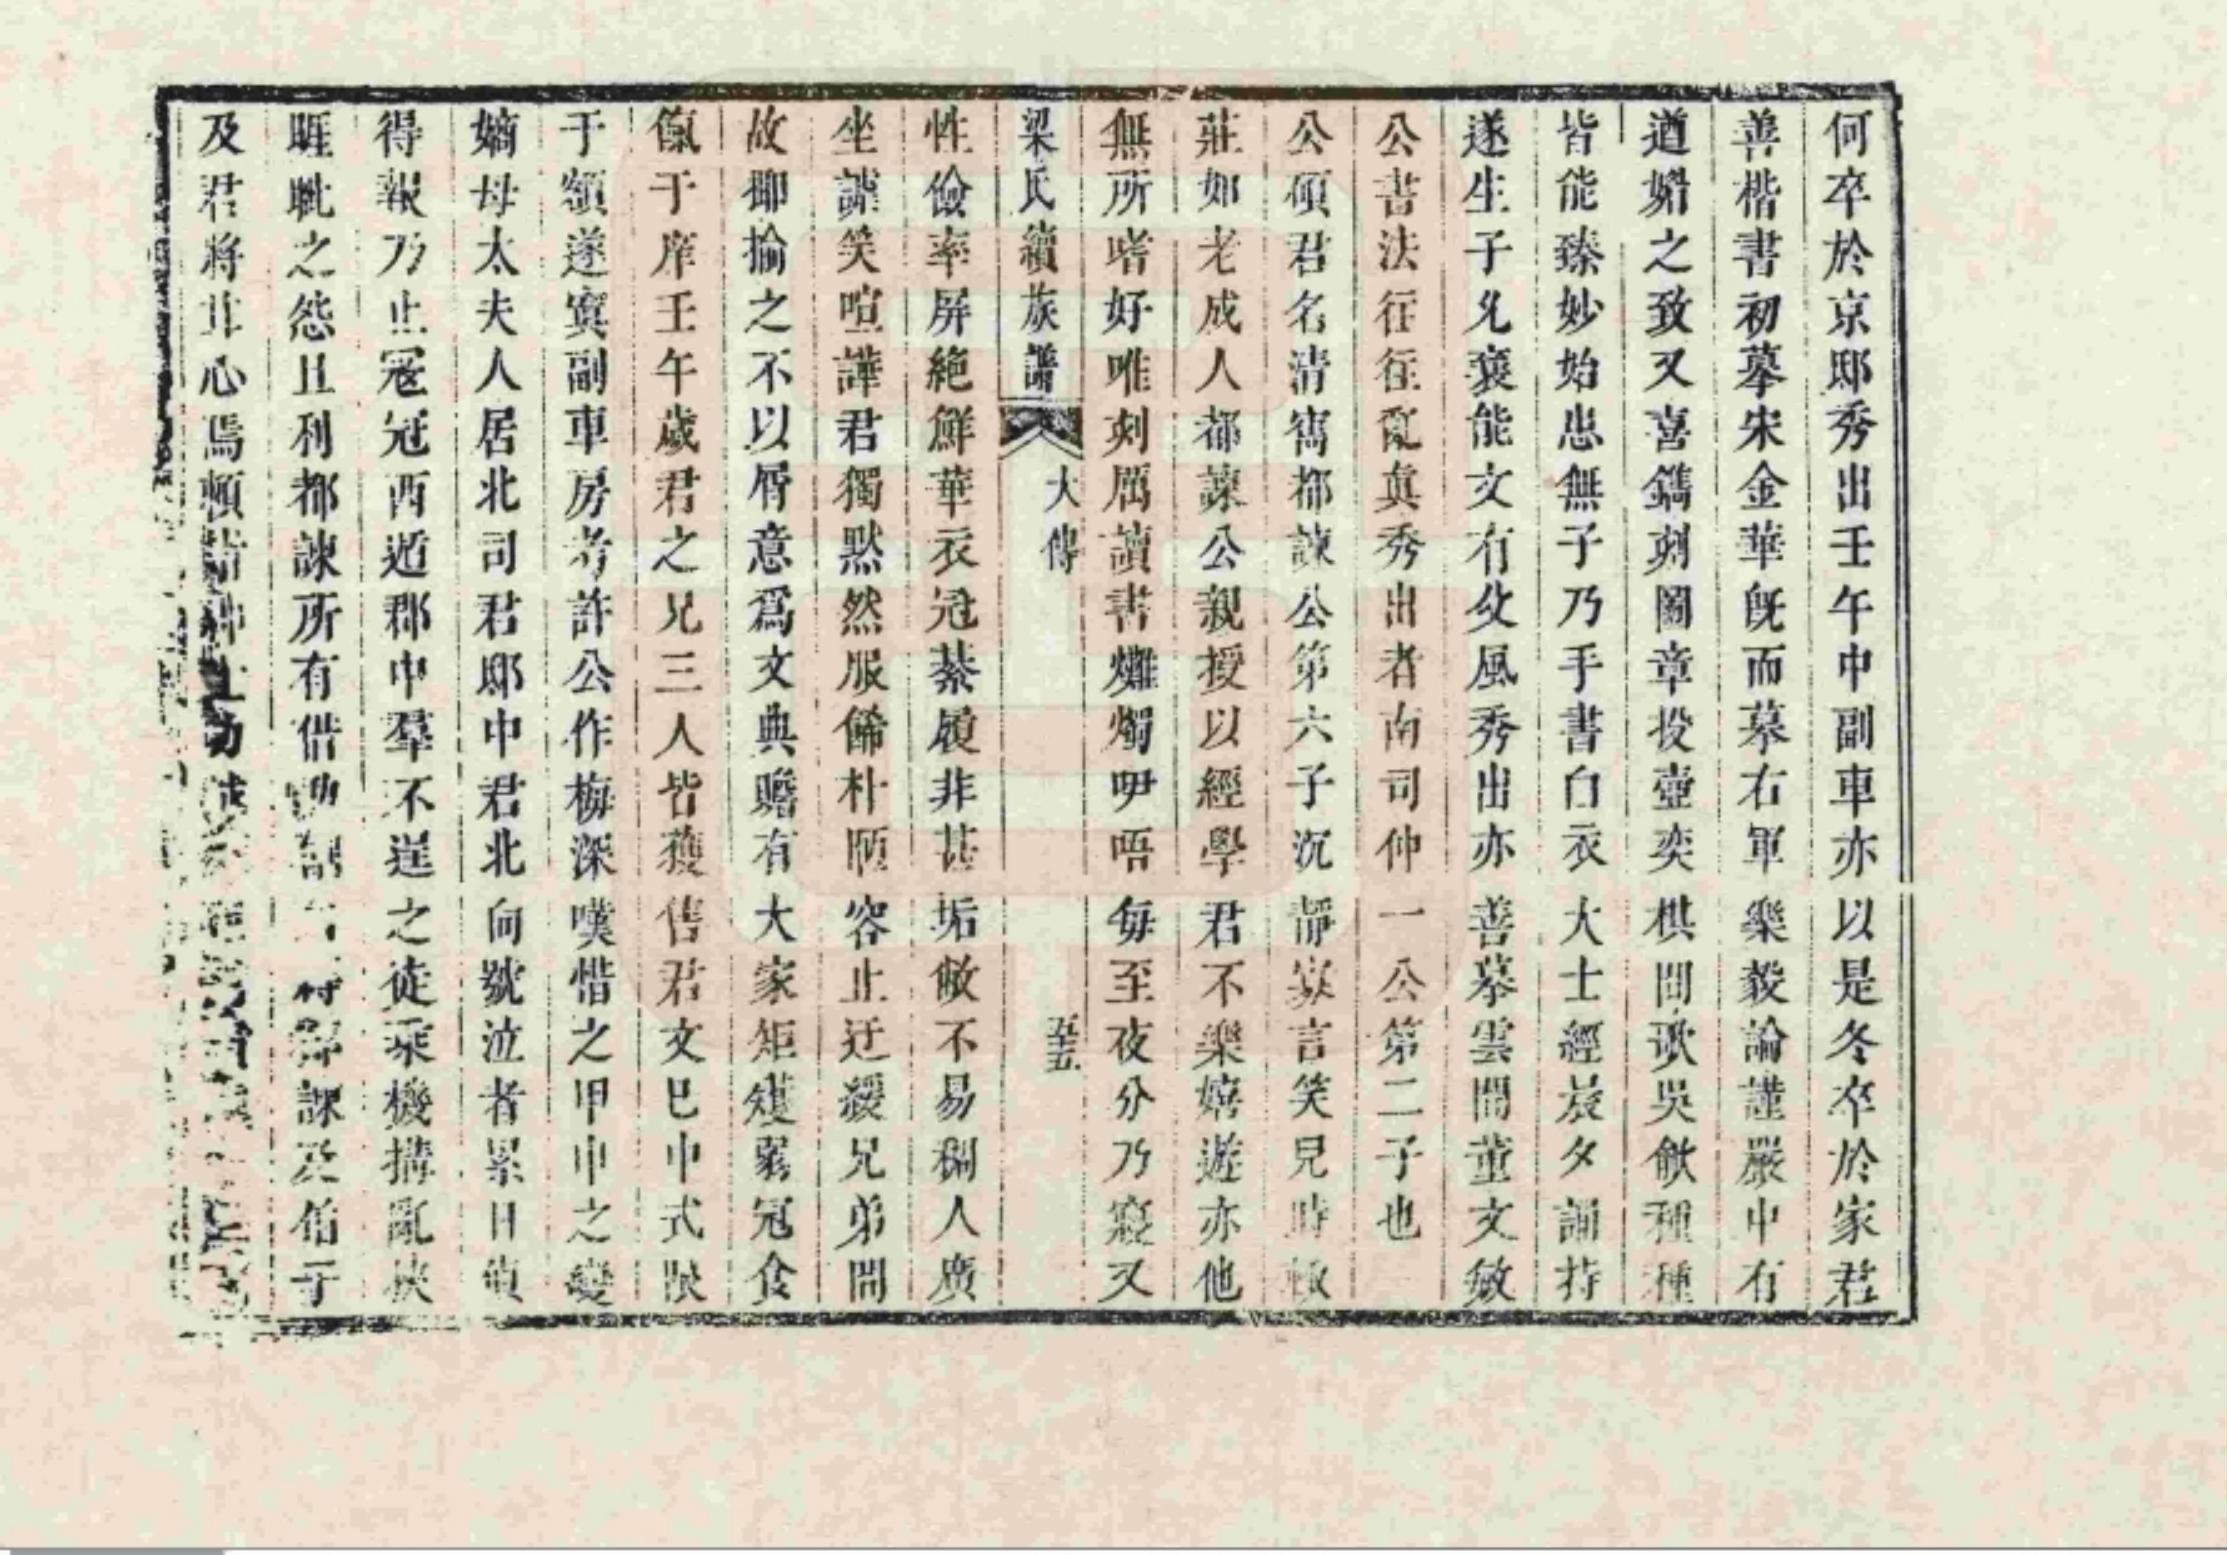 何卒於京邸秀出壬午中副車亦以是冬卒於家君
善楷書初摹宋金華旣而摹右軍樂毅論謹嚴中有
遒媚之致又喜鐫刻圖章投壺奕棋間歌吳歈種種
皆能臻妙始患無子乃手書白衣大士經晨夕誦持
遂生子允襄能文有父風秀出亦善摹雲間董文敏
公書法往往亂眞秀出者南司仲一公第二子也
公碩君名清寯都諫公第六子沉靜寡言笑見時
莊如老成人都諫公親授以經學君不樂嬉遊亦他
無所嗜好唯刻厲讀書爇燭吚唔每至夜分乃寢又
梁氏續族譜
大傳
五十五
性儉率屏絕鮮華衣冠綦履非甚垢敝不易稠人廣
坐謔笑喧譁君獨默然服餙朴陋容止迂緩兄弟間
故揶揄之不以屑意爲文典贍有大家矩矱弱冠食
餼于庠壬午歲君之兄三人皆獲售君文已中式限
于額遂寘副車房考許公作梅深嘆惜之甲申之變
嫡母太夫人居北司君邸中君北向號泣者累日偵
得報乃止冦冠西遁郡中羣不逞之徒乘機搆亂挾
睚眦之怨且利都諫所有借助課及伯于
及君將北心焉頓